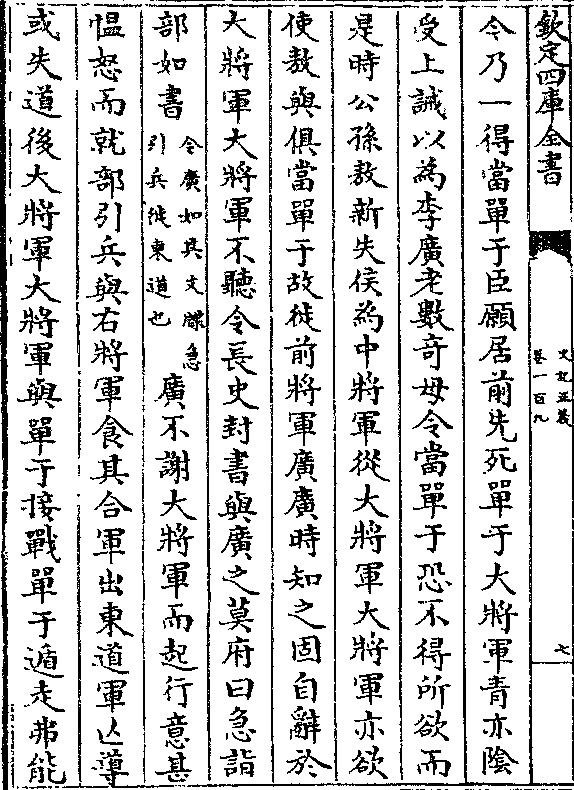 欽定四庫全書
史記正義
卷一百九
七
令乃一得當單于臣願居前先死單于大將軍青亦陰
受上誡以為李廣老數奇毋令當單于恐不得所欲而
是時公孫敖新失侯為中將軍從大將軍大將軍亦欲
使敖與俱當單于故徙前將軍廣廣時知之固自辭於
大將軍大將軍不聽令長史封書與廣之莫府曰急詣
部如書
令廣如其文牒急
引兵徙東道也
廣不謝大將軍而起行意甚
愠怒而就部引兵與右將軍食其合軍出東道軍亡導
或失道後大將軍大將軍與單于接戰單于遁走弗能